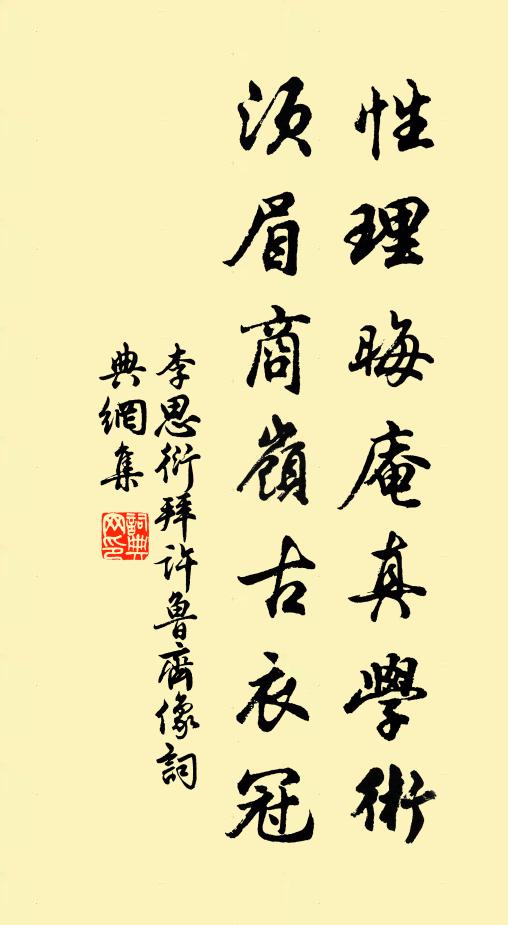 性理晦庵真學術
須眉商嶺古衣冠
李思衍拜許魯齋像詞
典網集
詞典
網印